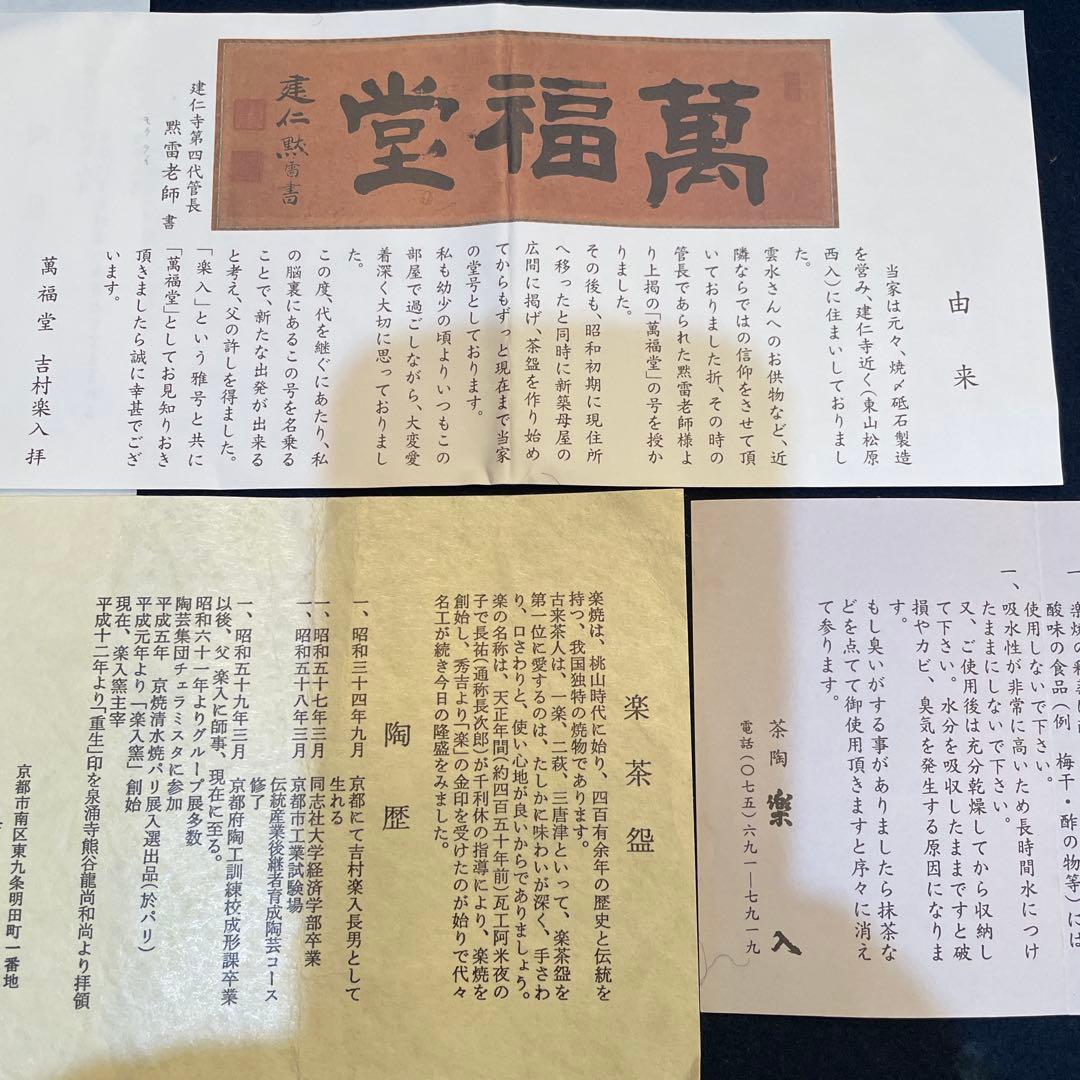 萬福堂
建仁黙雷書
建仁寺第四代管長
黙雷老師 書
モクライ
由来
当家は元々、焼〆砥石製造
を営み、建仁寺近く(東山松原
西入)に住まいしておりまし
た。
雲水さんへのお供物など、近
隣ならではの信仰をさせて頂
いておりました折、その時の
管長であられた黙雷老師様よ
り上掲の「萬福堂」の号を授か
りました。
その後も、昭和初期に現住所
へ移ったと同時に新築母屋の
広間に掲げ、茶盌を作り始め
てからもずっと現在まで当家
の堂号としております。
私も幼少の頃よりいつもこの
部屋で過ごしながら、大変愛
着深く大切に思っておりまし
た。
この度、代を継ぐにあたり、私
の脳裏にあるこの号を名乗る
ことで、新たな出発が出来る
と考え、父の許しを得ました。
「楽入」という雅号と共に
「萬福堂」としてお見知りおき
頂きましたら誠に幸甚でござ
います。
萬福堂 吉村楽入 拝
酸味の食品(例 梅干・酢の物等)には
使用しないで下さい。
一、吸水性が非常に高いため長時間水につけ
たままにしないで下さい。
又、ご使用後は充分乾燥してから収納し
て下さい。水分を吸収したままですと破
損やカビ、臭気を発生する原因になりま
す。
もし臭いがする事がありましたら抹茶な
どを点てて御使用頂きますと序々に消え
て参ります。
茶陶 楽入
電話(〇七五)六九一―七九一九
楽茶盌
楽焼は、桃山時代に始り、四百有余年の歴史と伝統を
持つ、我国独特の焼物であります。
古来茶人は、一楽、二萩、三唐津といって、楽茶盌を
第一位に愛するのは、たしかに味わいが深く、手さわ
り、口さわりと、使い心地が良いからでありましょう。
楽の名称は、天正年間(約四百五十年前)瓦工阿米夜の
子で長祐(通称長次郎)が千利休の指導により、楽焼を
創始し、秀吉より「楽」の金印を受けたのが始りで代々
名工が続き今日の隆盛をみました。
陶歴
一、昭和三十四年九月 京都にて吉村楽入長男として
生れる
一、昭和五十七年三月 同志社大学経済学部卒業
一、昭和五十八年三月 京都市工業試験場
伝統産業後継者育成陶芸コース
修了
一、昭和五十九年三月 京都府陶工訓練校成形課卒業
以後、父 楽入に師事、現在に至る。
昭和六十一年よりグループ展多数
陶芸集団チェラミスタに参加
平成五年 京焼清水焼パリ展入選出品(於パリ)
平成元年より「楽入窯」創始
現在、楽入窯主宰
平成十二年より「重生」印を泉涌寺熊谷龍尚和尚より拝領
京都市南区東九条明田町一番地